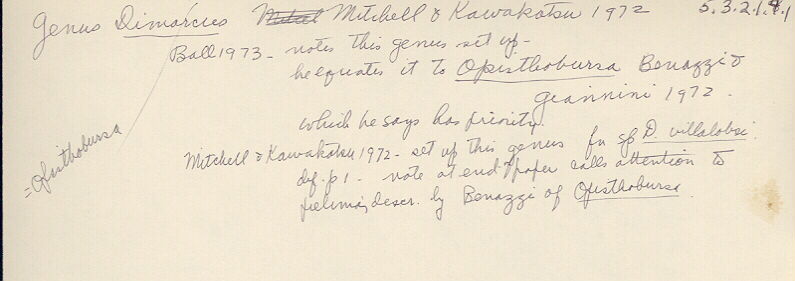 Genus Dimarcus Mitchell & Kawakatsu 1972 5.3.2.1.8.1
Ball 1973 - notes this genus set up -
he equates it to Opisthobursa Benazzi &
Giannini 1972.
which he says has priority.
= Opisthobursa
Mitchell & Kawakatsu 1972 - set up this genus for sp D. villalobsi.
def. p 1 - note at end of paper calls attention to
prelimin. descr. by Benazzi of Opisthobursa.